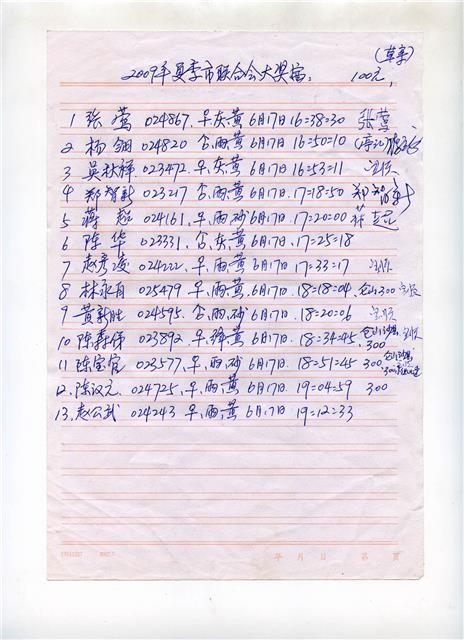 2009年夏季市联合会大奖
100元
1 张莺 024867. 早,灰,黄 6月17日 16=38=30 张莺
2 杨 024820 雨,黄 6月17日 16=50=10
3 吴林祥 023472. 早,灰,黄 6月17日 16=53=11
4 郑智新 023217 雨,黄 6月17日. 17=18=50 郑智新
5 蒋起 024161. 早,雨,砂 6月17日. 17=20=00 蒋起
6 陈华 023331 灰,黄 6月17日. 17=25=18
7 赵 024222 早,雨,黄. 6月17日. 17=33=17
8 林永育 025479 早,雨,黄. 6月17日. 18=18=04 仓山300
9 黄新胜 024595. 雨,黄. 6月17日. 18=20=06
10 陈寿保 023892 早, 黄 6月17日. 18=34=45. 300
11 陈宝官 023577. 早,雨,砂 6月17日. 18=51=45 300
12. 陈汉元. 024725. 早,雨,黄 6月17日. 19=04=59 300
13. 赵公武 024243 早,雨,黄 6月17日 19=12=33
年 月 日 第 页